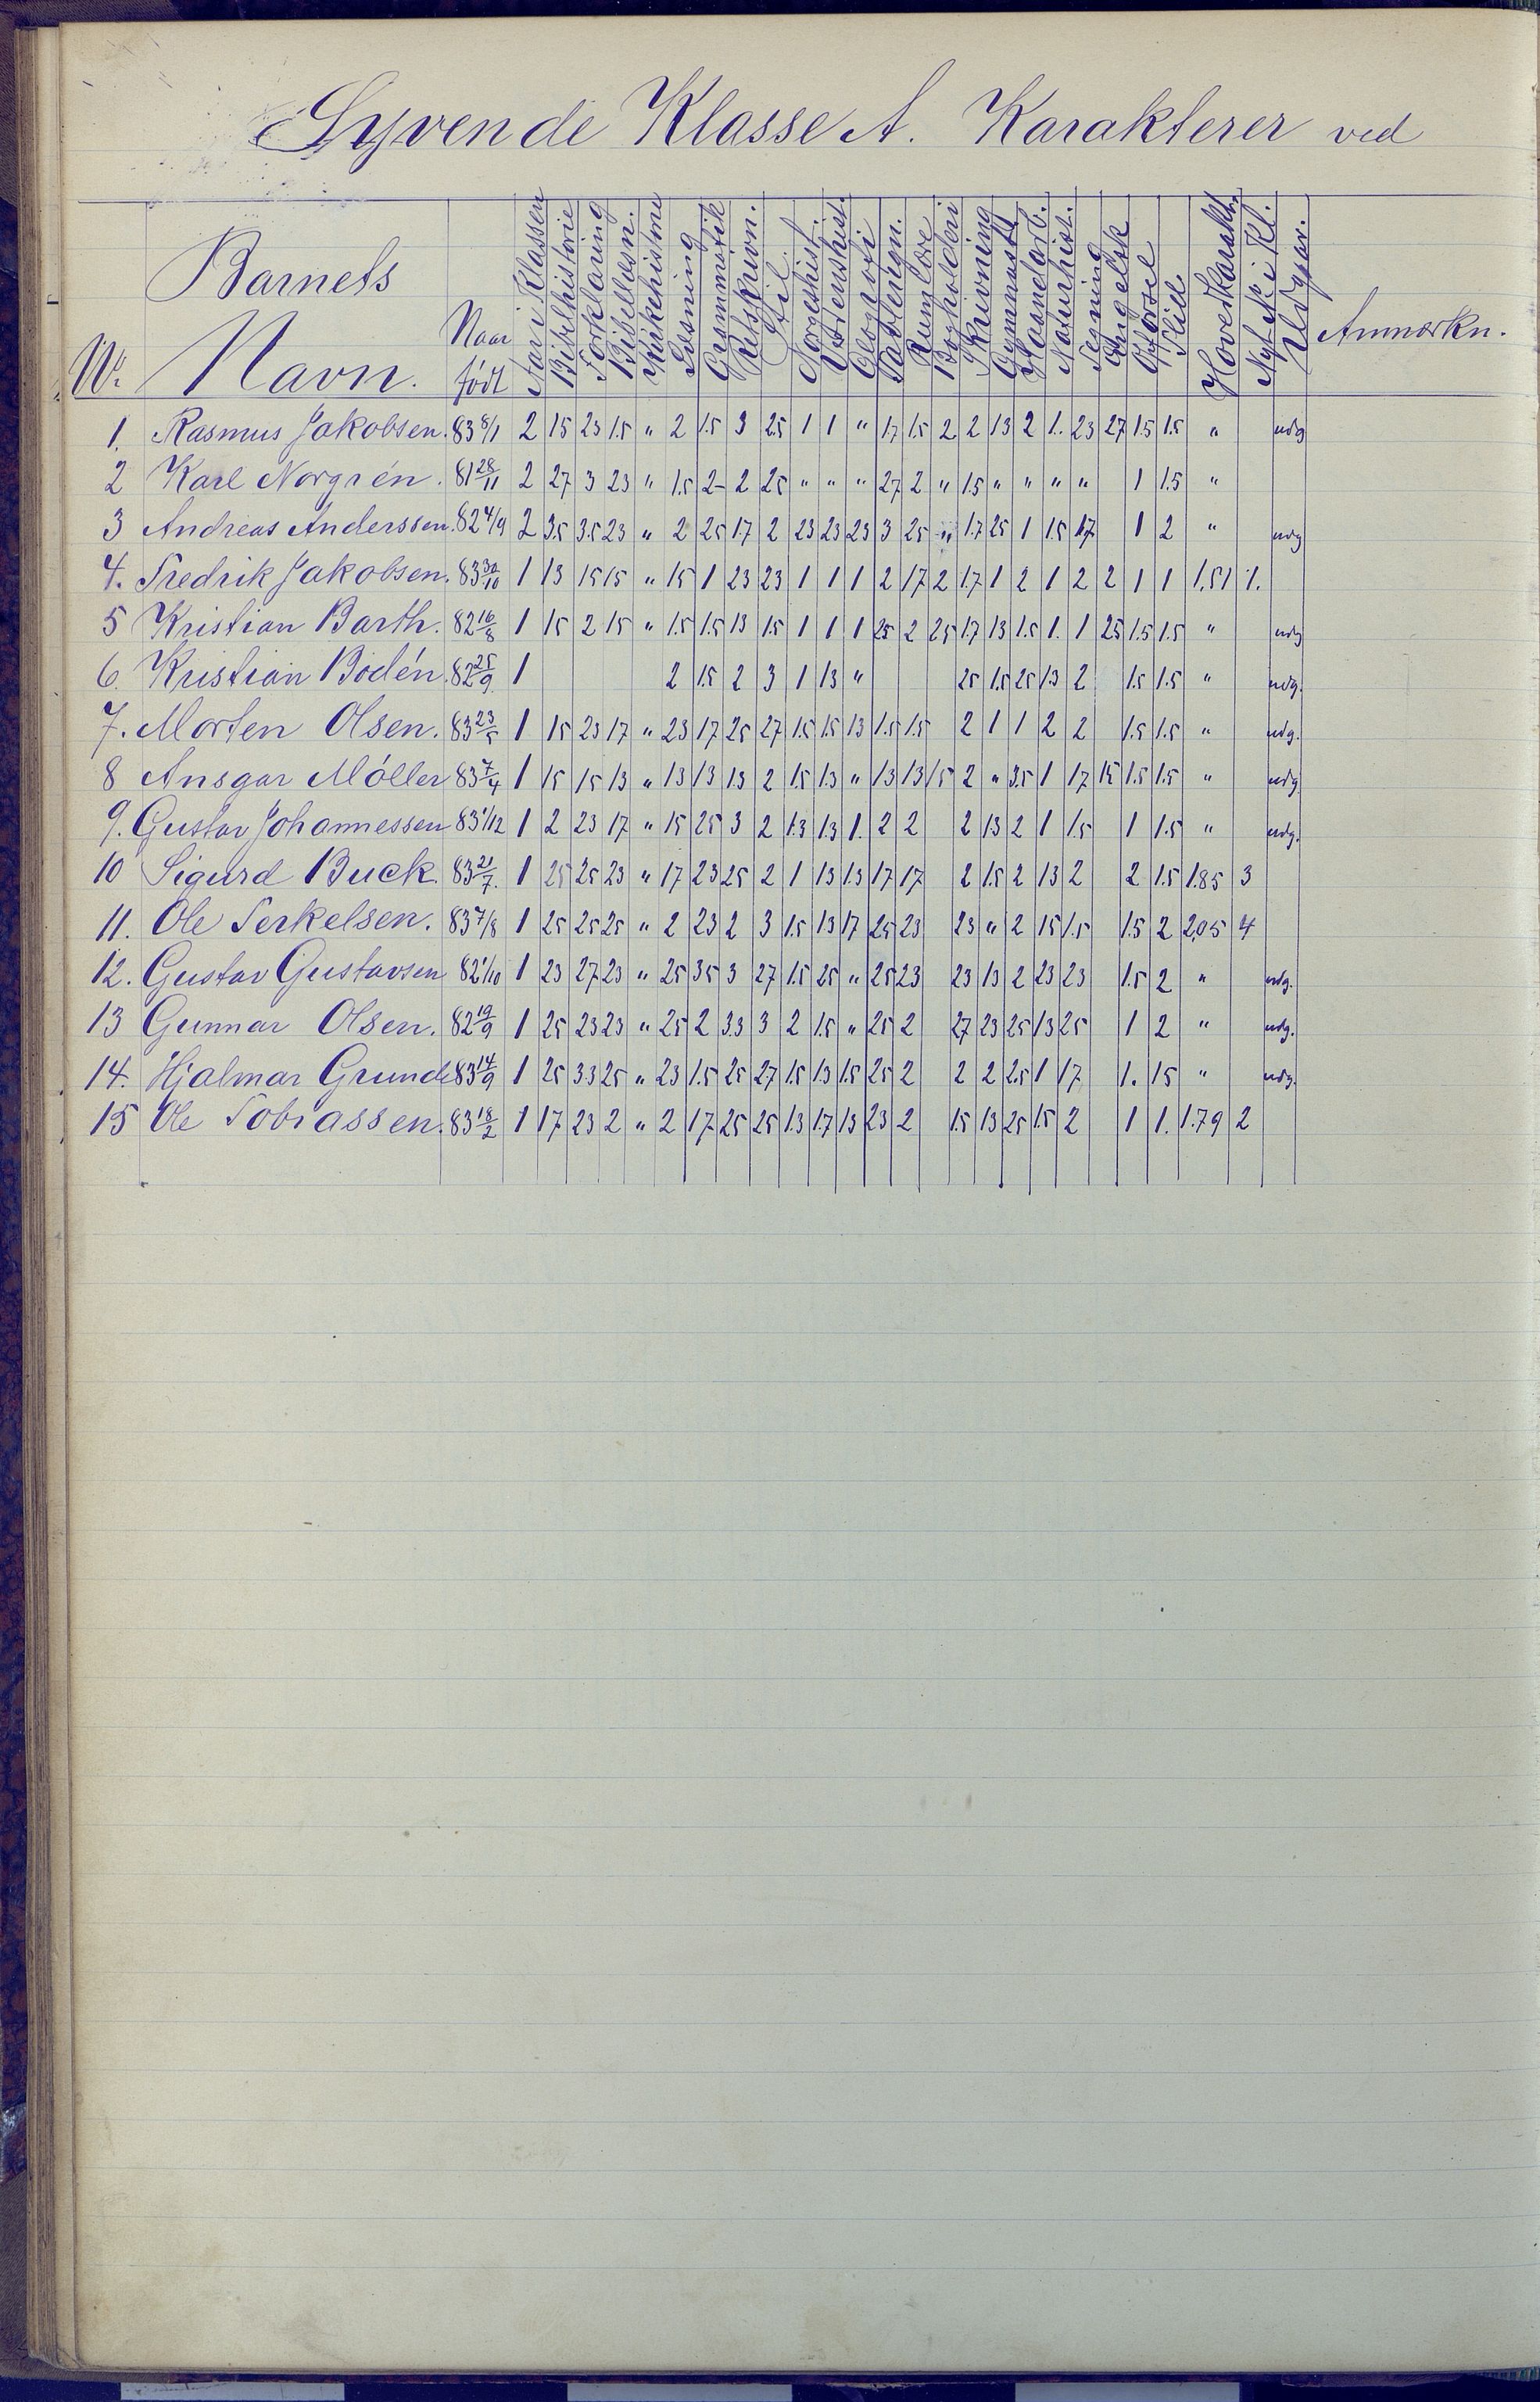 Syvende Klasse A. Karakterer ved
No. Barnets Navn. Naar født Aar i Klassen Bibelhistorie Forklaring Bibellæsn. Kirkehistorie Læsning Grammatik Retskrivn. Stil Norgeshist. Verdenshist. Geografi Tavleregn. Rumlære Bogholderi Skrivning Gymnastik Haandarb. Naturhist. Tegning Engelsk Opførsel Flid Hovedkarakt. Nyt No i Kl. Udgaar. Anmærkn.
1. Rasmus Jakobsen. 83 8/1 2 15 23 1.5 " 2 1.5 3 2.5 1 1 " 17 1.5 2 2 13 2 1. 23 27 1.5 1.5 " udg
2 Karl Norgrén. 81 28/11 2 27 3 23 " 1.5 2 2 25 " " " 27 2 " 1.5 " " " " 1 1.5 "
3 Andreas Anderssen. 82 4/9 2 3.5 3.5 23 " 2 25 17 2 23 23 23 3 25 " 1.7 25 1 1.5 17 1 2 " udg
4. Fredrik Jakobsen. 83 30/10 1 13 15 15 " 15 1 23 23 1 1 1 2 17 2 1.7 1 2 1 2 2 1 1 1.51 1.
5 Kristian Barth. 82 16/8 1 15 2 15 " 1.5 1.5 13 1.5 1 1 1 25 2 25 1.7 13 1.5 1. 1 25 1.5 1.5 " udg
6. Kristian Bodén. 82 25/9 1 2 1.5 2 3 1 13 " 25 1.5 25 13 2 1.5 1.5 " udg.
7. Morten Olsen. 83 23/5 1 15 23 17 " 23 17 25 27 1.5 1.5 13 1.5 1.5 2 1 1 2 2 1.5 1.5 " udg.
8 Ansgar Møller 83 7/4 1 15 15 13 " 13 13 13 2 1.5 13 " 13 13 15 2 " 3.5 1 17 15 1.5 1.5 " udg
9. Gustav Johannessen 83 1/12 1 2 23 17 " 15 25 3 2 1.3 13 1. 2 2 2 13 2 1 1.5 1 1.5 " udg.
10 Sigurd Buck. 83 21/7. 1 25 25 23 " 17 23 25 2 1 13 1.3 17 17 2 1.5 2 13 2 2 1.5 1.85 3
11. Ole Terkelsen. 83 7/8 1 25 25 25 " 2 23 2 3 1.5 13 17 25 23 23 " 2 15 1.5 1.5 2 2,05 4
12. Gustav Gustavsen 82 1/10 1 23 27 23 " 25 35 3 27 1.5 25 " 25 23 23 13 2 23 23 1.5 2 " udg.
13 Gunnar Olsen. 82 19/9 1 25 23 23 " 25 2 3.3 3 2 1.5 " 25 2 27 23 25 13 25 1 2 " udg.
14. Hjalmar Grunde 83 14/9 1 25 33 25 " 23 1.5 25 27 1.5 13 1.5 25 2 2 2 2.5 1 17 1. 15 " udg.
15 Ole Tobiassen. 83 18/2 1 17 23 2 " 2 17 25 25 1.3 1.7 13 23 2 1.5 13 25 1.5 2 1 1. 1.79 2